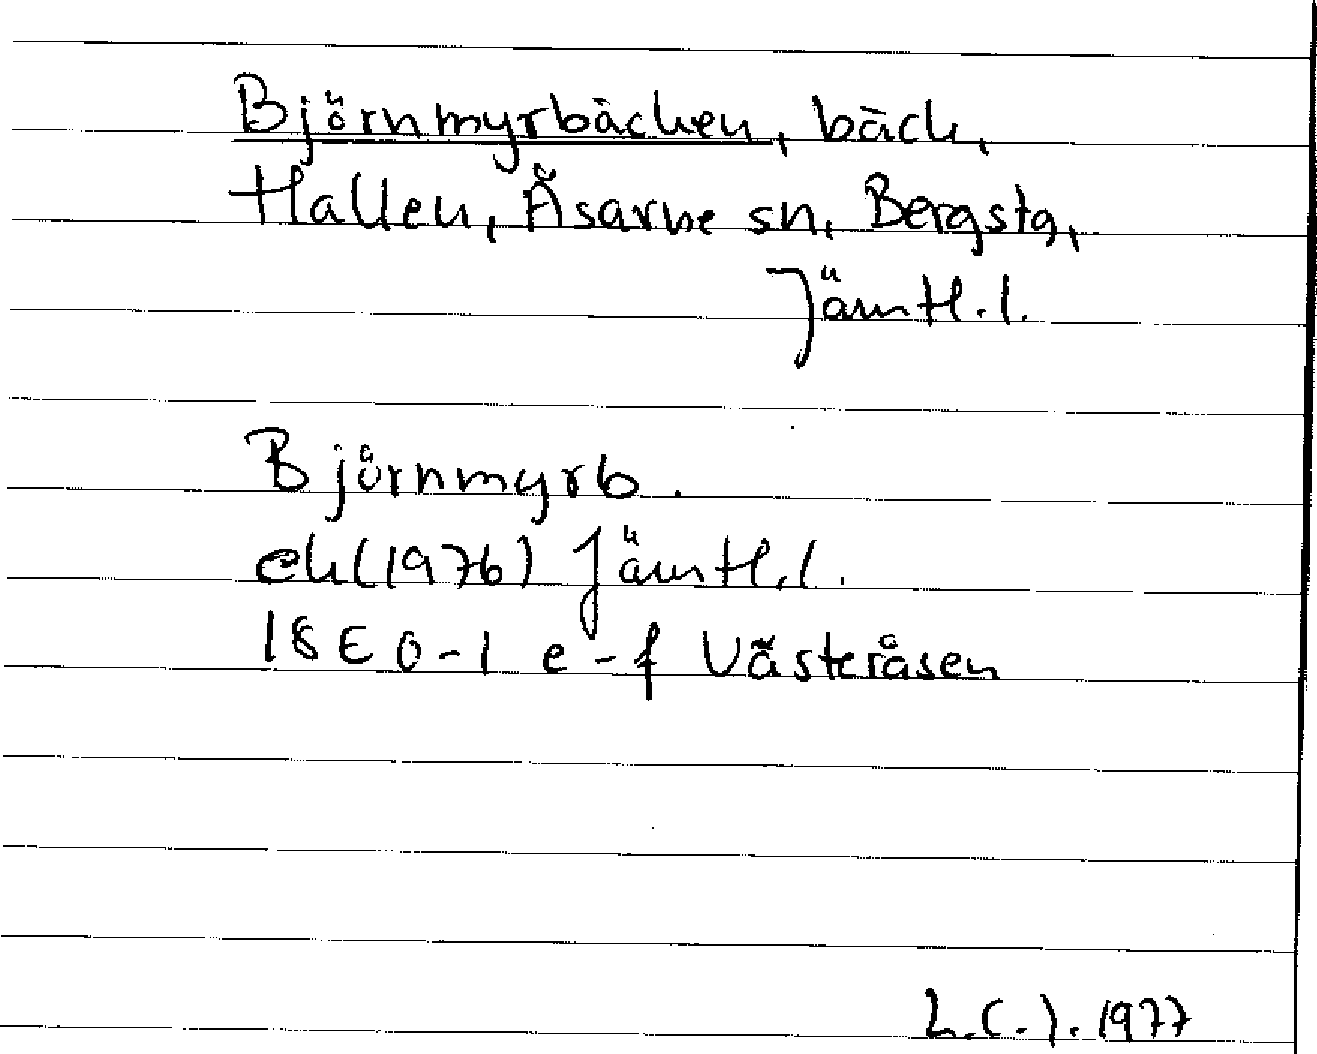 Björnmyrbäcken, bäck,
Hallen, Åsarne sn, Bergstg,
Jämtl.l.
Björnmyrb.
ek (1976) Jämtl.l.
18E 0-1 e-f Västeråsen
L.C.J. 1977